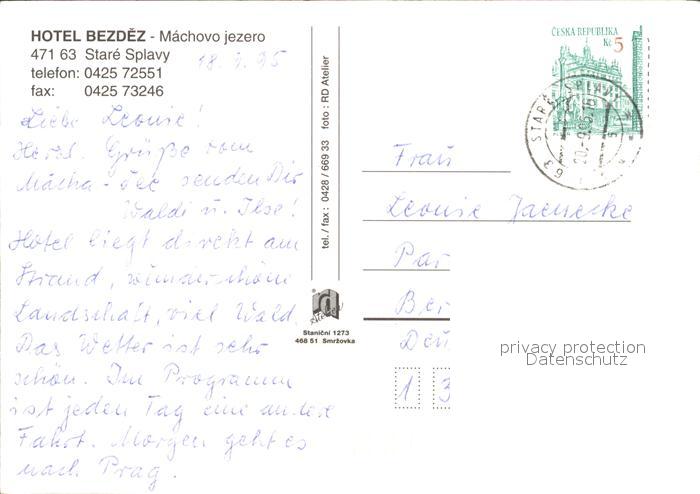 HOTEL BEZDĚZ - Máchovo jezero
471 63 Staré Splavy
telefon: 0425 72551
fax: 0425 73246
18.9.95
Liebe Leonie!
Herzl. Grüße vom
Mácha-See senden Dir
Waldi u. Ilse!
Hotel liegt direkt am
Strand, wunderschöne
Landschaft, viel Wald.
Das Wetter ist sehr
schön. Im Programm
ist jeden Tag eine andere
Fahrt. Morgen geht es
nach Prag.
tel./fax: 0428 / 669 33 foto: RD Atelier
Staniční 1273
468 51 Smržovka
ČESKÁ REPUBLIKA
Kč 5
STARÉ SPLAVY
20.-9.95
Frau
Leonie Jaenecke
Par
Ber
Deu
1 3
privacy protection
Datenschutz